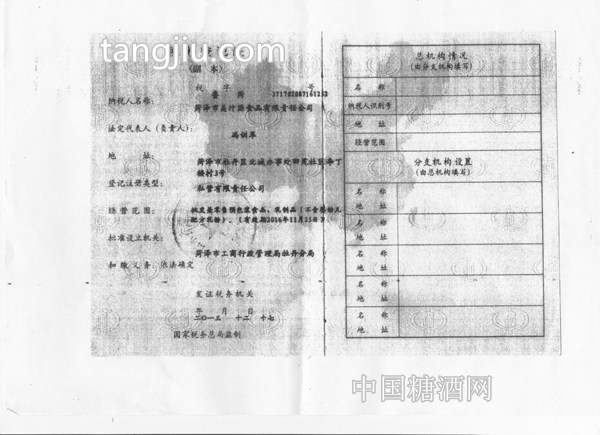 tangjiu.com
(副 本)
税 字 号
鲁 菏 371702087161233
纳税人名称:
菏泽市美行源食品有限责任公司
法定代表人(负责人):
地 址:
菏泽市牡丹区北城办事处
楼村3号
登记注册类型:
私营有限责任公司
经营范围:
批发兼零售预包装食品、乳制品(不含婴幼儿
配方乳粉)。(有效期2016年11月25日)
批准设立机关:
菏泽市工商行政管理局牡丹分局
扣缴义务:依法确定
发证税务机关
年 月 日
二〇一三 十二 十七
国家税务总局监制
总机构情况
(由分支机构填写)
名 称
纳税人识别号
地 址
经营范围
分支机构设置
(由总机构填写)
名 称
地 址
名 称
地 址
名 称
地 址
名 称
地 址
名 称
地 址
中国糖酒网